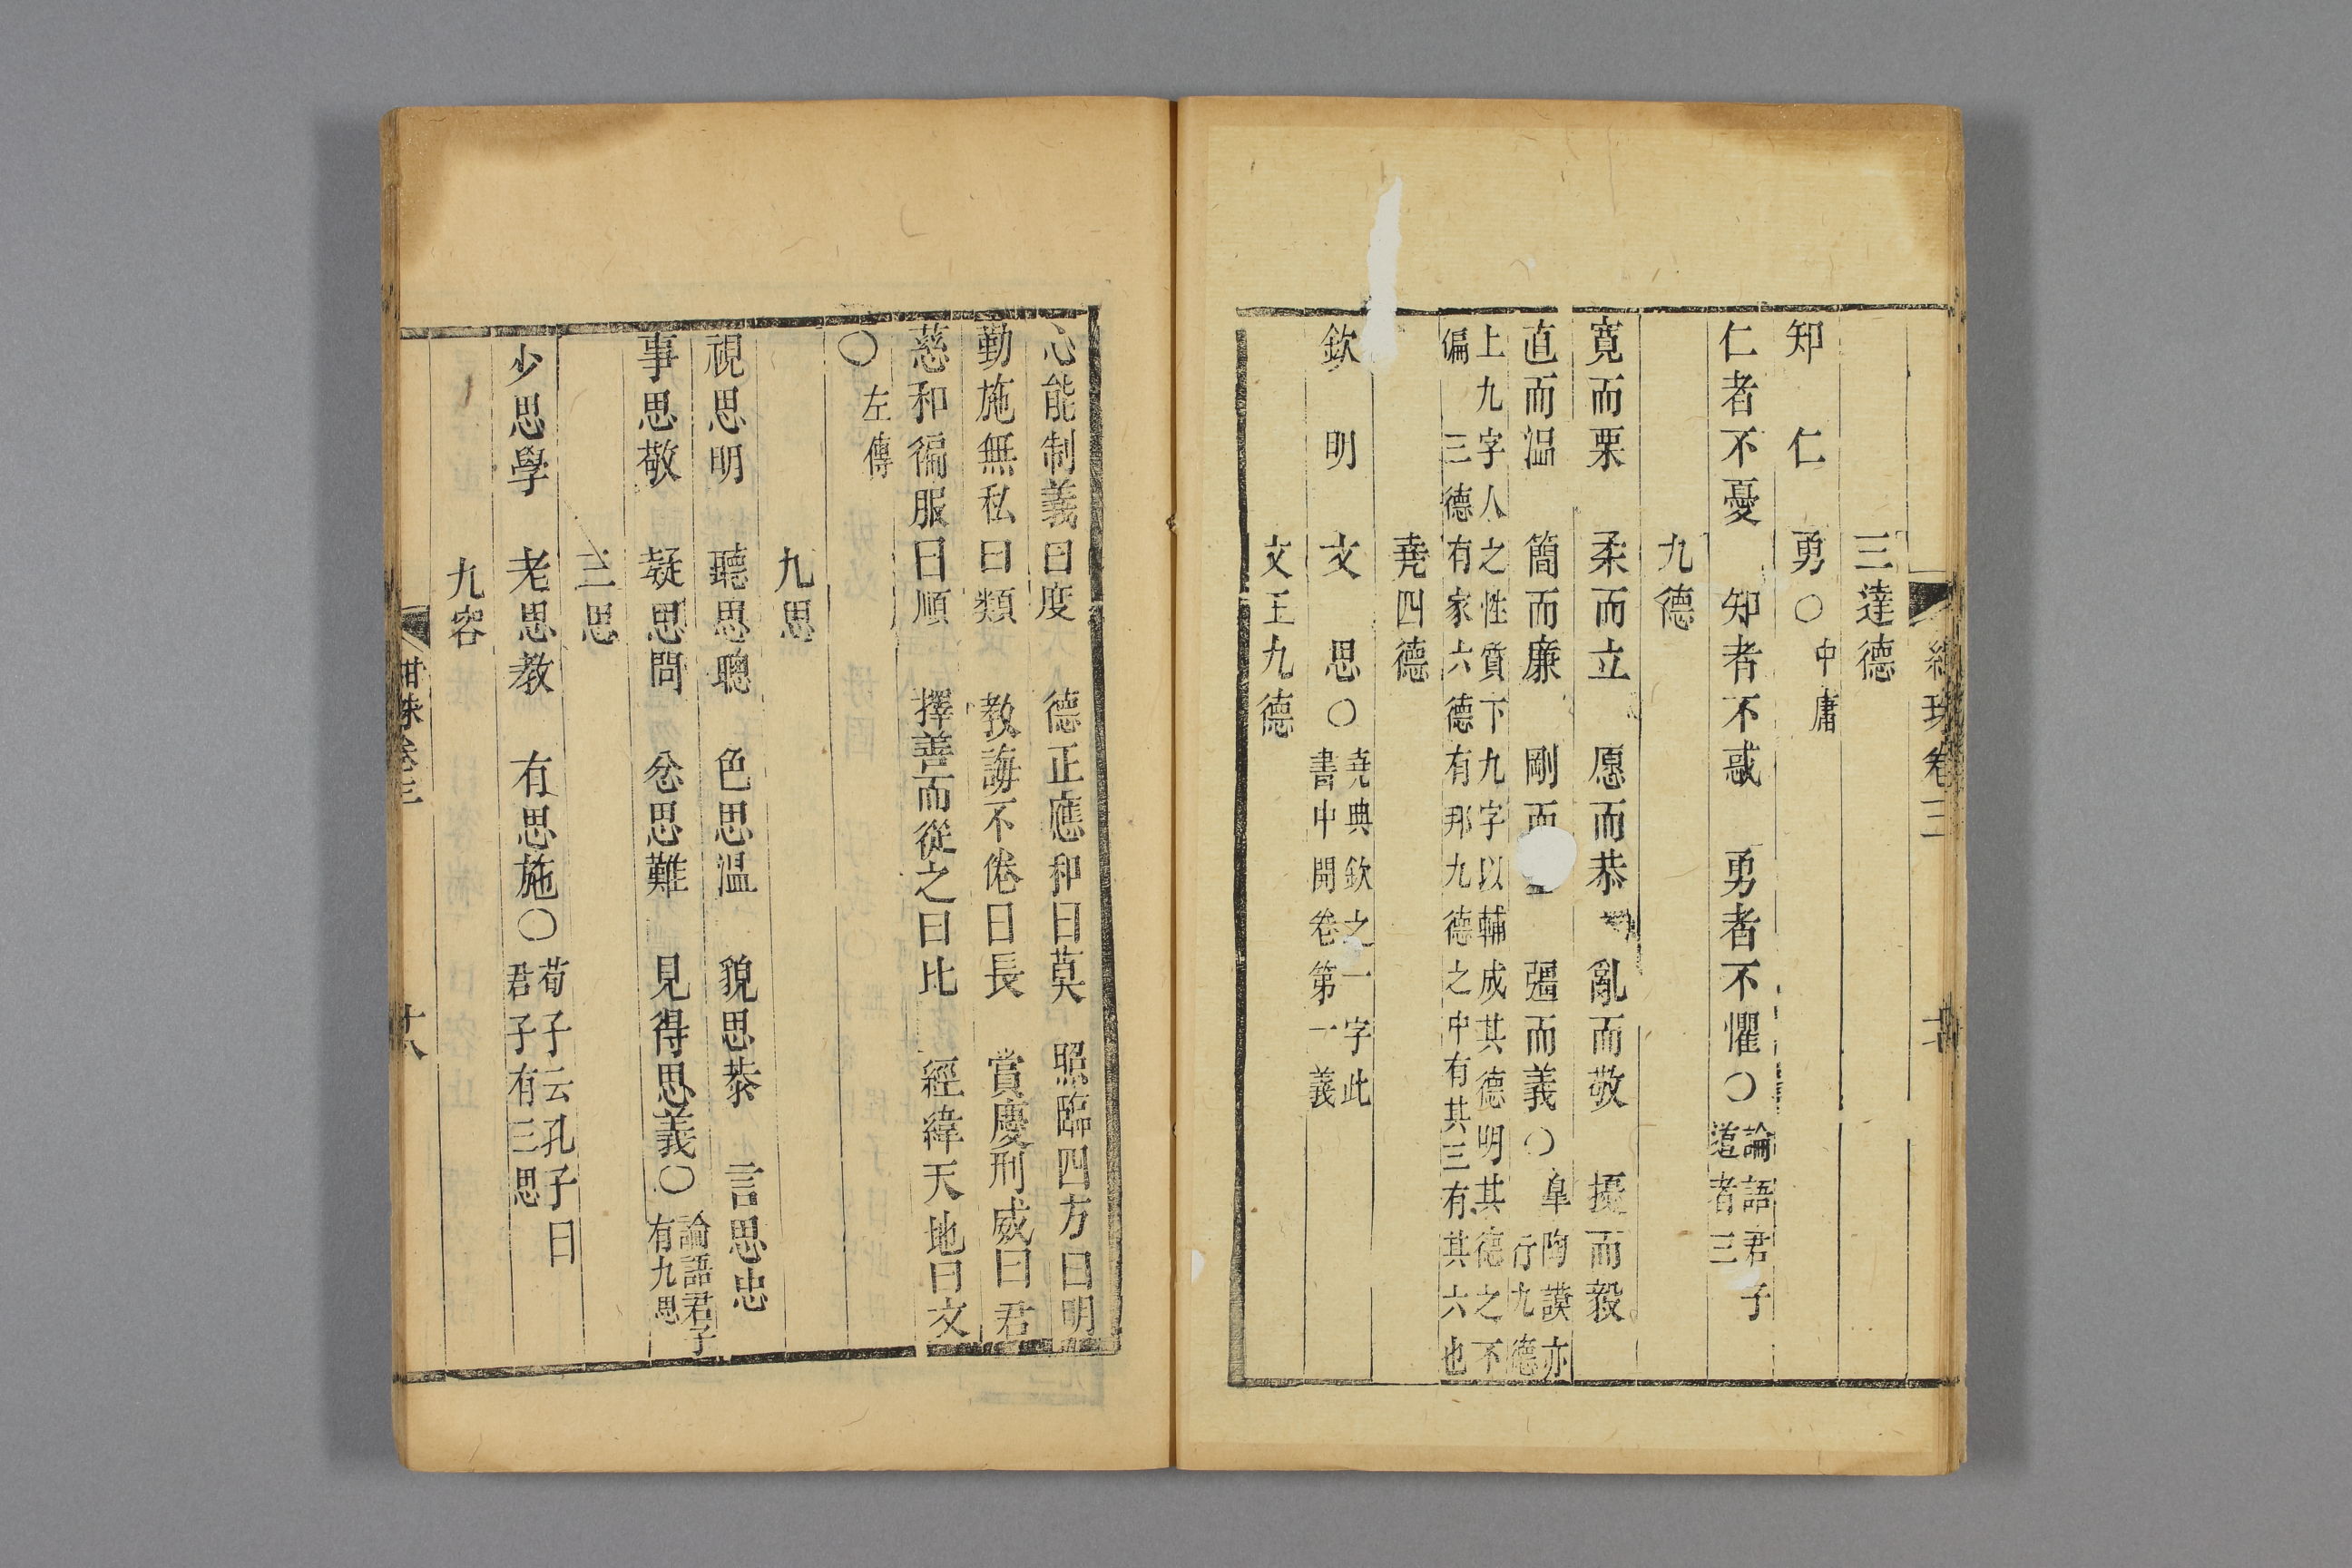 紺珠卷三
三達德
知　仁　勇○中庸
仁者不憂　知者不惑　勇者不懼○論語君子
道者三
九德
寬而栗　柔而立　愿而恭　亂而敬　擾而毅
直而温　簡而廉　剛而　彊而義○皐陶謨亦
行九德
上九字人之性質下九字以輔成其德明其德之不
偏　三德有家六德有邦九德之中有其三有其六也
堯四德
欽　明　文　思○堯典欽之一字此
書中開卷第一義
文王九德
心能制義曰度　德正應和曰莫　照臨四方曰明
勤施無私曰類　教誨不倦曰長　賞慶刑威曰君
慈和徧服曰順　擇善而從之曰比　經緯天地曰文
○左傳
九思
視思明　聽思聰　色思温　貌思恭　言思忠
事思敬　疑思問　忿思難　見得思義○論語君子
有九思
三思
少思學　老思教　有思施○荀子云孔子曰
君子有三思
九容
紺珠卷三　十八